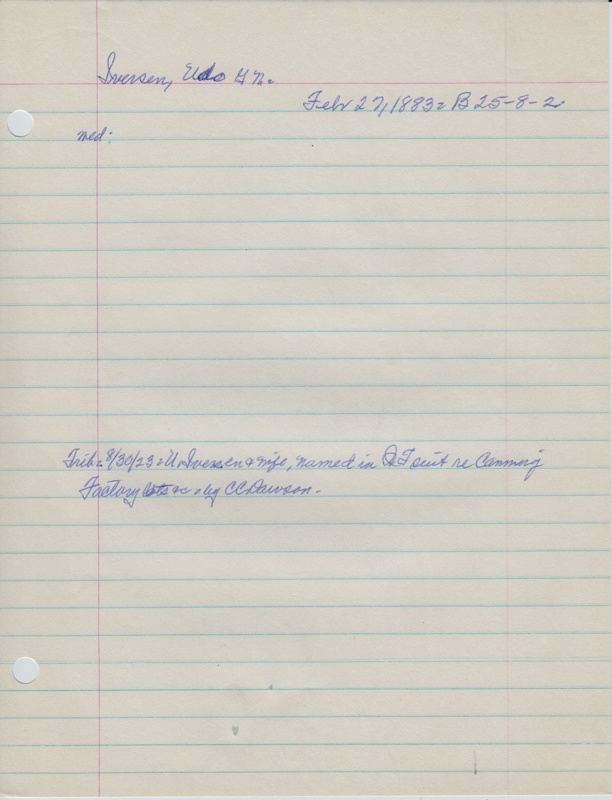 Iversen, Udo
Feb 27, 1883 = B 25-8-2
med:
Trib = 8/30/23 = U. Iversen & wife, named in QT suit re Canning
Factory lots &c = by CC Dawson -